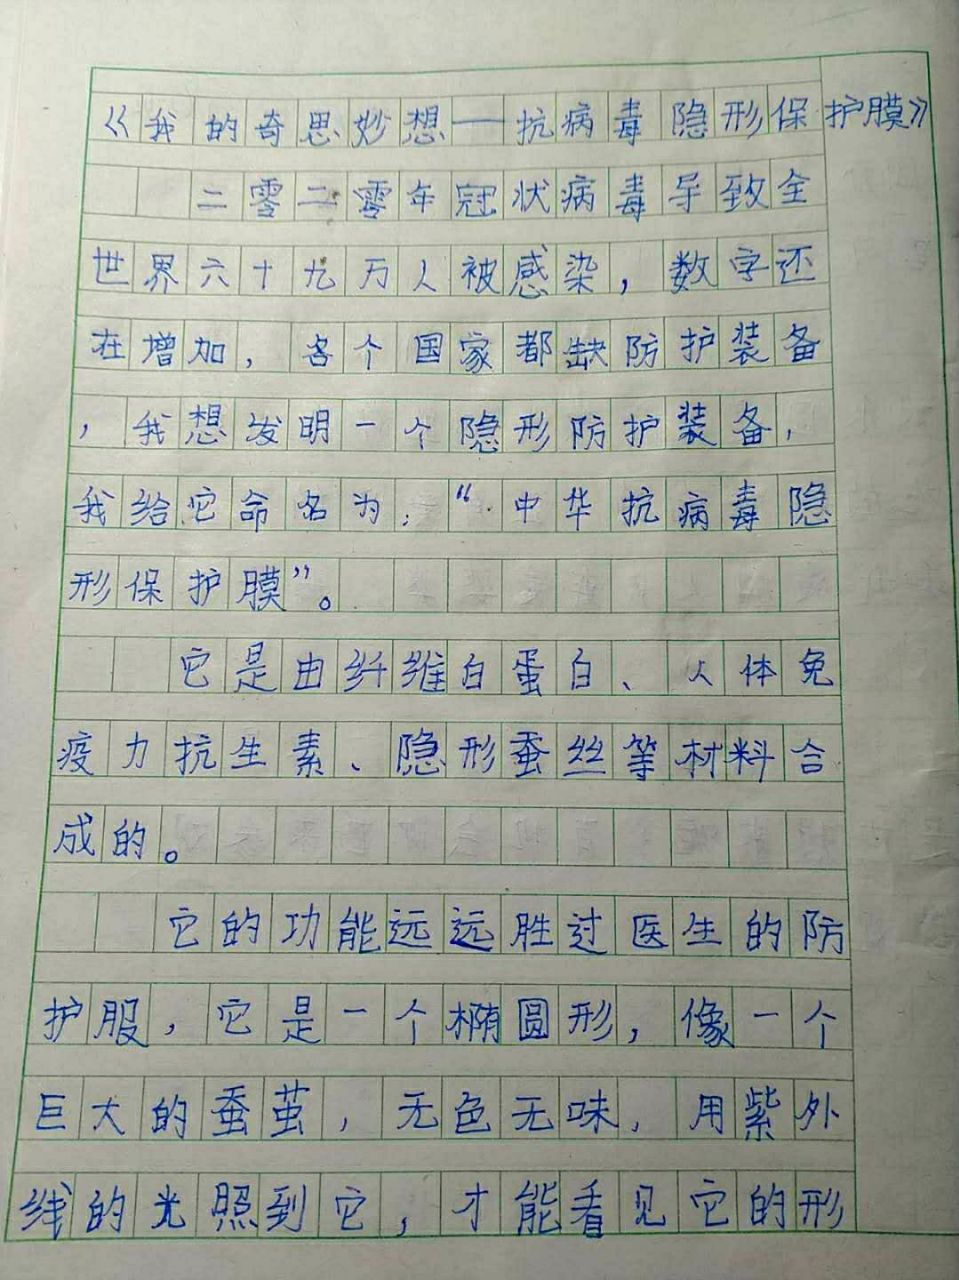 《我的奇思妙想——抗病毒隐形保护膜》
二零二零年冠状病毒导致全
世界六十九万人被感染，数字还
在增加，各个国家都缺防护装备
，我想发明一个隐形防护装备，
我给它命名为：“中华抗病毒隐
形保护膜”。
它是由纤维白蛋白、人体免
疫力抗生素、隐形蚕丝等材料合
成的。
它的功能远远胜过医生的防
护服，它是一个椭圆形，像一个
巨大的蚕茧，无色无味，用紫外
线的光照到它，才能看见它的形